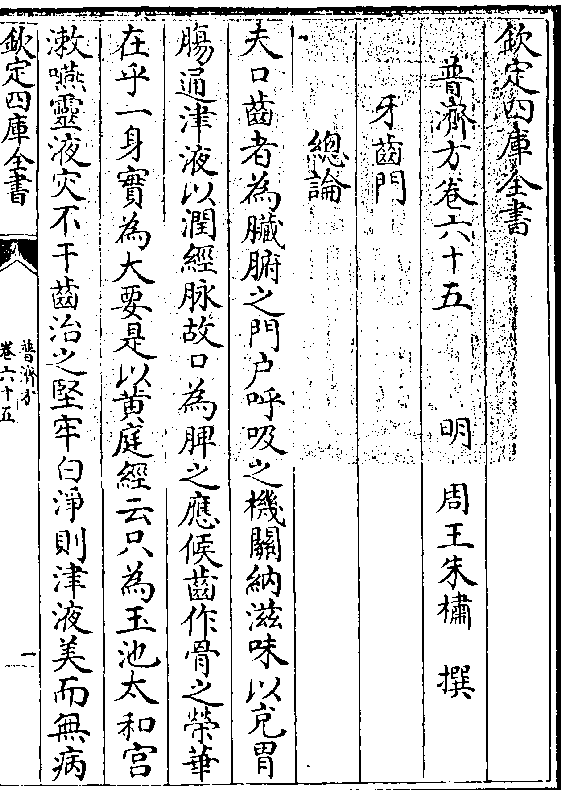 欽定四庫全書
普濟方卷六十五　明　周王朱橚　撰
牙齒門
總論
夫口齒者為臟腑之門户呼吸之機關納滋味以充胃
腸通津液以潤經脉故口為脾之應候齒作骨之榮華
在乎一身實為大要是以黄庭經云只為玉池太和宫
漱嚥靈液灾不干齒治之堅牢白淨則津液美而無病
欽定四庫全書
普濟方
卷六十五
一